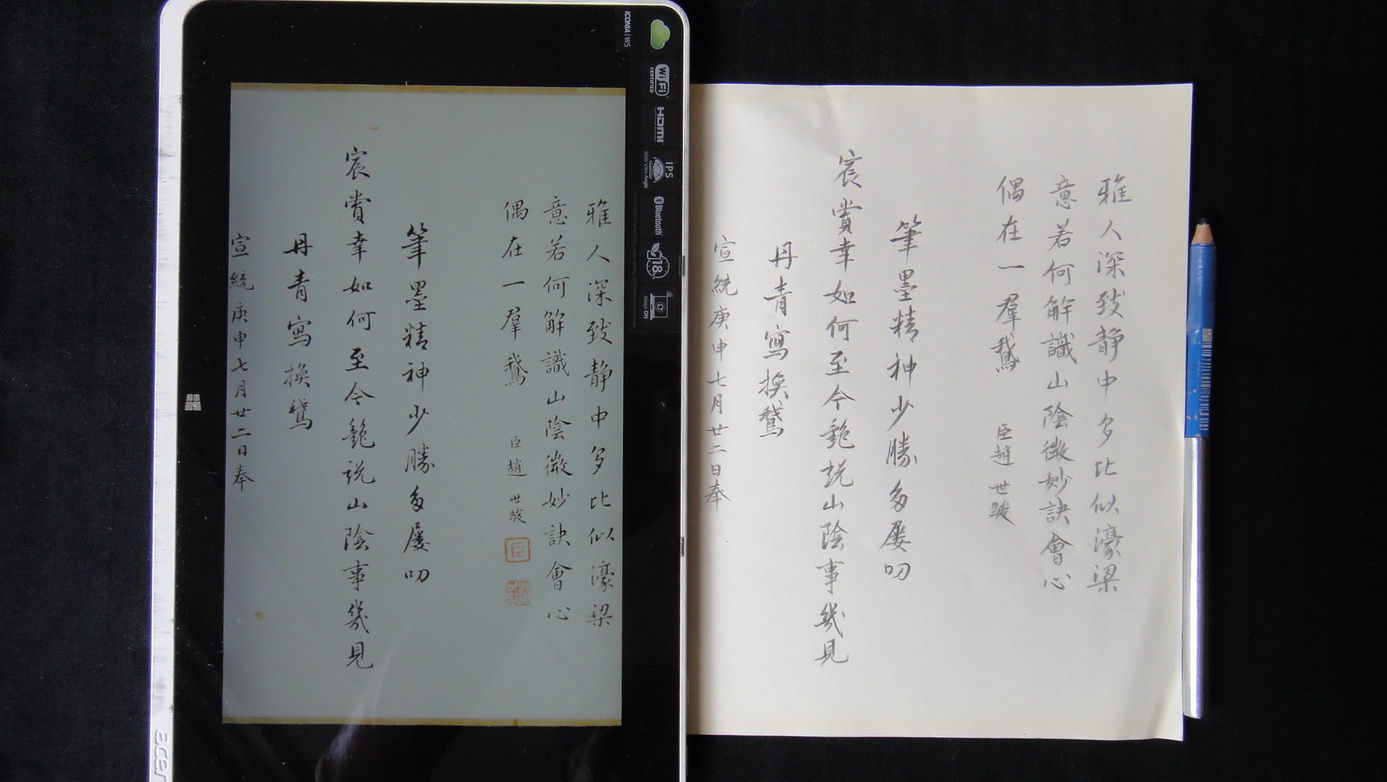 雅人深致静中多比似濠梁
意若何解識山陰微妙訣會心
偶在一羣鵞
臣趙世駿
筆墨精神少勝多屢叨
宸賞幸如何至今艶説山陰事幾見
丹青寫換鵞
宣統庚申七月廿二日奉
雅人深致静中多比似濠梁
意若何解識山陰微妙訣會心
偶在一羣鵞
臣趙世駿
筆墨精神少勝多屢叨
宸賞幸如何至今艶説山陰事幾見
丹青寫換鵞
宣統庚申七月廿二日奉
ICONIA W5
WiFi CERTIFIED
HDMI
IPS
Bluetooth
18
acer